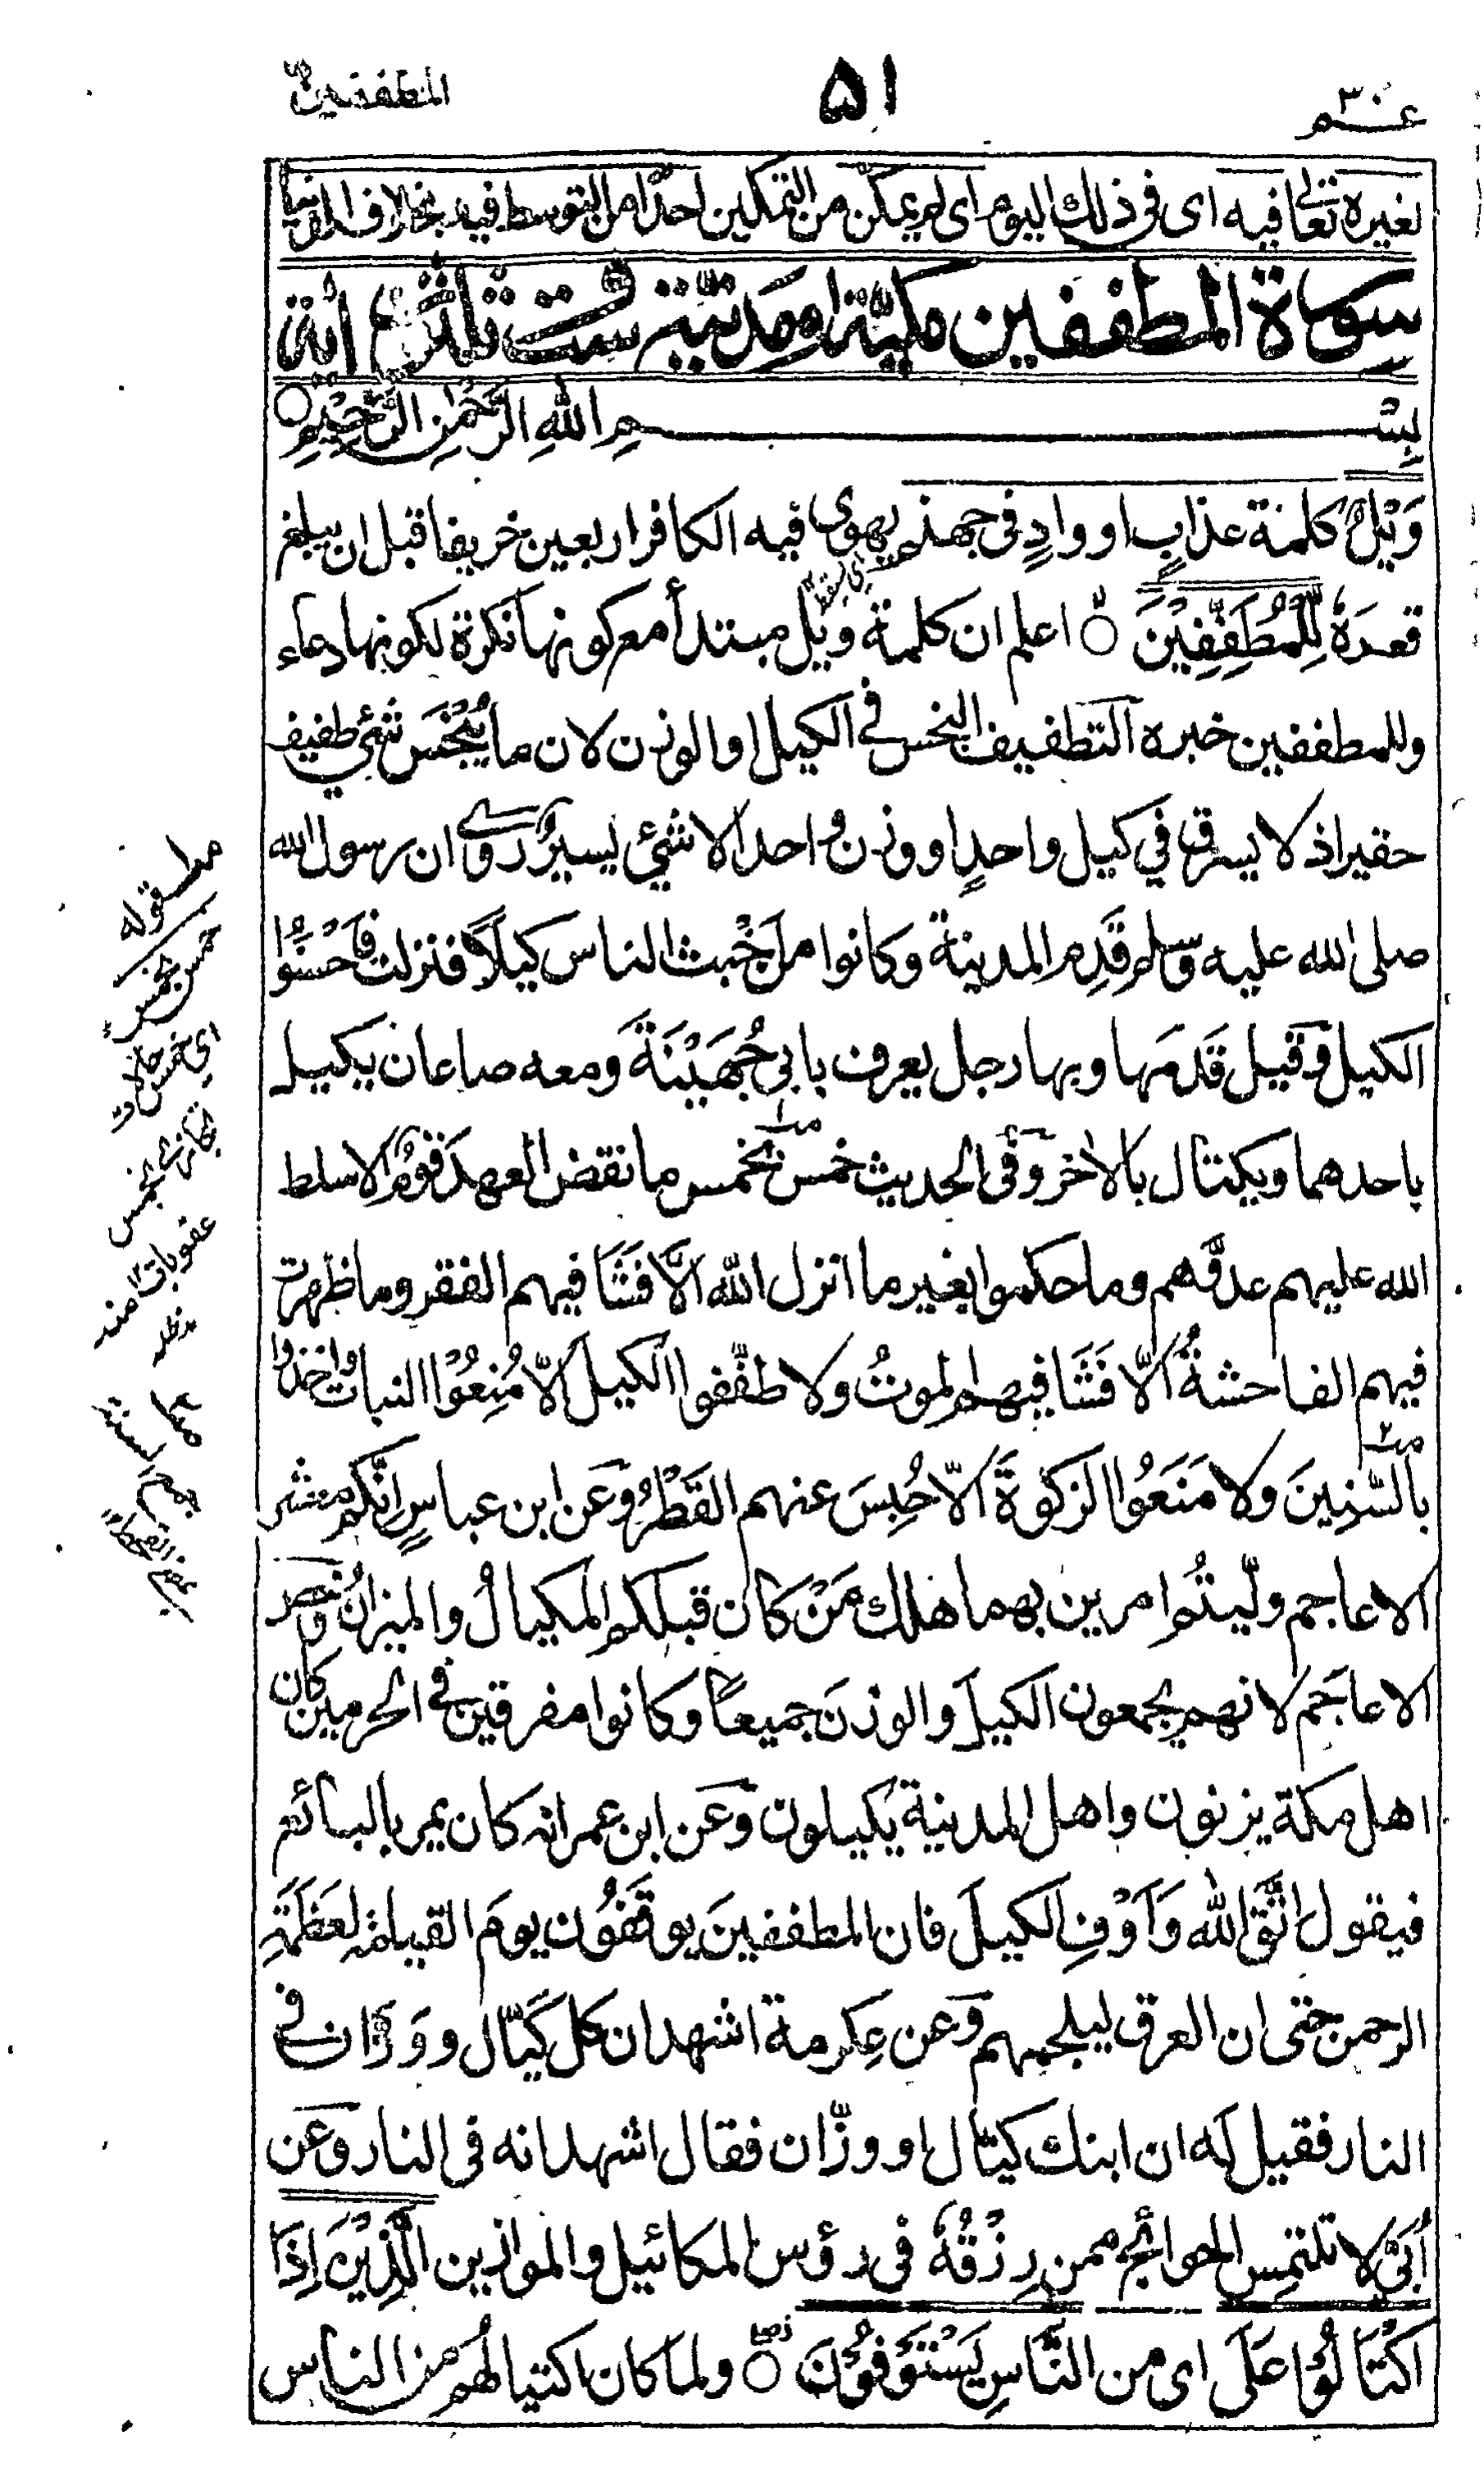 عم ٣٠
٥١
المطففين
لغيره تعالى فيه اى فى ذلك اليوم اى لم يمكن من التمكين احدا من التوسط فيه بخلاف الدنيا
سورة المطففين مكية او مدنية ست وثلثون اية
بِسْمِ اللهِ الرَّحْمٰنِ الرَّحِيْمِ
وَيْلٌ كلمة عذابٍ او وادٍ فى جهنم يهوى فيه الكافر اربعين خريفا قبل ان يبلغ
اى يسقط
قعرهٗ لِّلْمُطَفِّفِيْنَ ○ اعلم ان كلمة ويل مبتدأ مع كونها نكرة لكونها دعاء
وللمطففين خبره التطفيف البخس في الكيل او الوزن لان ما يُبْخَس شئي طفيف
حقير اذ لا يسرق في كيل واحدٍ او وزن واحد الا شئي يسيرٌ رُوى ان رسول الله
صلى الله عليه وسلم قَدِم المدينة وكانوا من اَخْبث الناس كيلًا فنزلت فاَحْسَنُوا
الكيل وقيل قَدمَها وبها رجل يعرف بابى جُهَيْنَةَ ومعه صاعان يكيل
باحدهما ويكتال بالاٰخر وفى الحديث خمسٌ بخمس ما نقض العهدَ قومٌ الا سلط
الله عليهم عدوَّهم وما حكموا بغير ما انزل اللّٰه الَّا فَشَا فيهم الفقر وما ظهرت
فيهم الفاحشةُ الّا فَشَا فيهم الموتُ ولا طفّفوا الكيل الّا مُنِعُوْا النبات واخذوا
بالسّنِينَ ولا مَنَعُوا الزكوةَ الّا حُبِسَ عنهم القَطْرُ وعن ابن عباسٍ اِنّكم معشر
الاعاجم ولّيتُم امرين بهما هلك مَنْ كان قبلكم المكيالُ والميزانُ وخص
الاعاجَم لانهم يجمعون الكيلَ والوزنَ جميعًا وكانوا مفرقين في الحرمين كان
اهل مكة يزنون واهل المدينة يكيلون وعن ابن عمر انه كان يمر بالبائع
فيقول اتَّقِ اللّٰه وَاَوْفِ الكيلَ فان المطففينَ يوقَفُون يومَ القيٰمة لعَظَمَةِ
الرحمن حتى ان العرق ليلجمهم وعن عِكرمة اشهد ان كل كَيّال ووَزّان في
النار فقيل له ان ابنك كيّال او وزّان فقال اشهد انه فى النار وعن
اُبَىّ لا تلتمس الحوائج ممن رِزْقُهٗ فى رؤس المكائيل والموازين الَّذِيْنَ اِذَا
اكْتَالُوْا عَلَى اى من النَّاسِ يَسْتَوْفُوْنَ ○ ولما كان اكتيالُهم من الناس
قوله
خمس بخمس
اى خمس خلالات
بخمس
عقوبات ١٢ منه
مدظله
جمع السنة
بمعنى القحط